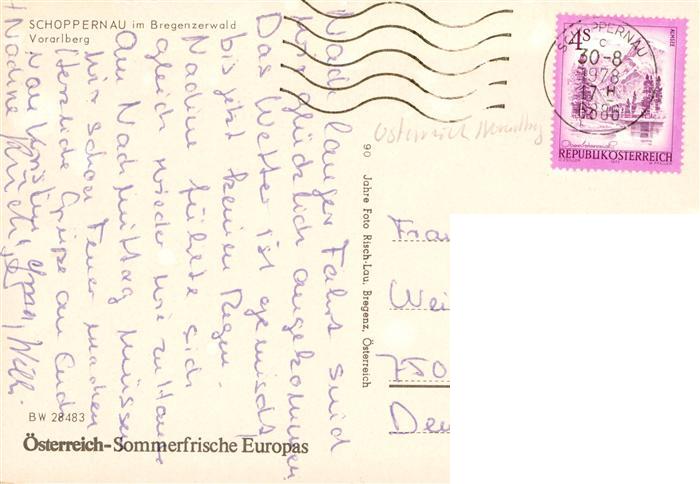 SCHOPPERNAU im Bregenzerwald
Vorarlberg
4S
ALMSEE
SCHOPPERNAU
c
30-8
1978
17 H
6886
Oberösterreich
REPUBLIKÖSTERREICH
Österreich Vorarlberg
Nach langer Fahrt sind
wir glücklich angekommen
Das Wetter ist gemischt
bis jetzt keinen Regen.
Nadine fühlte sich
gleich wieder wie zu Hause
Am Nachmittag müssen
wir schon Feuer machen
Herzliche Grüße an Euch
von Willi
Nadine
90 Jahre Foto Risch-Lau, Bregenz, Österreich
Frau
Wei
750
Deu
BW 28483
Österreich-Sommerfrische Europas